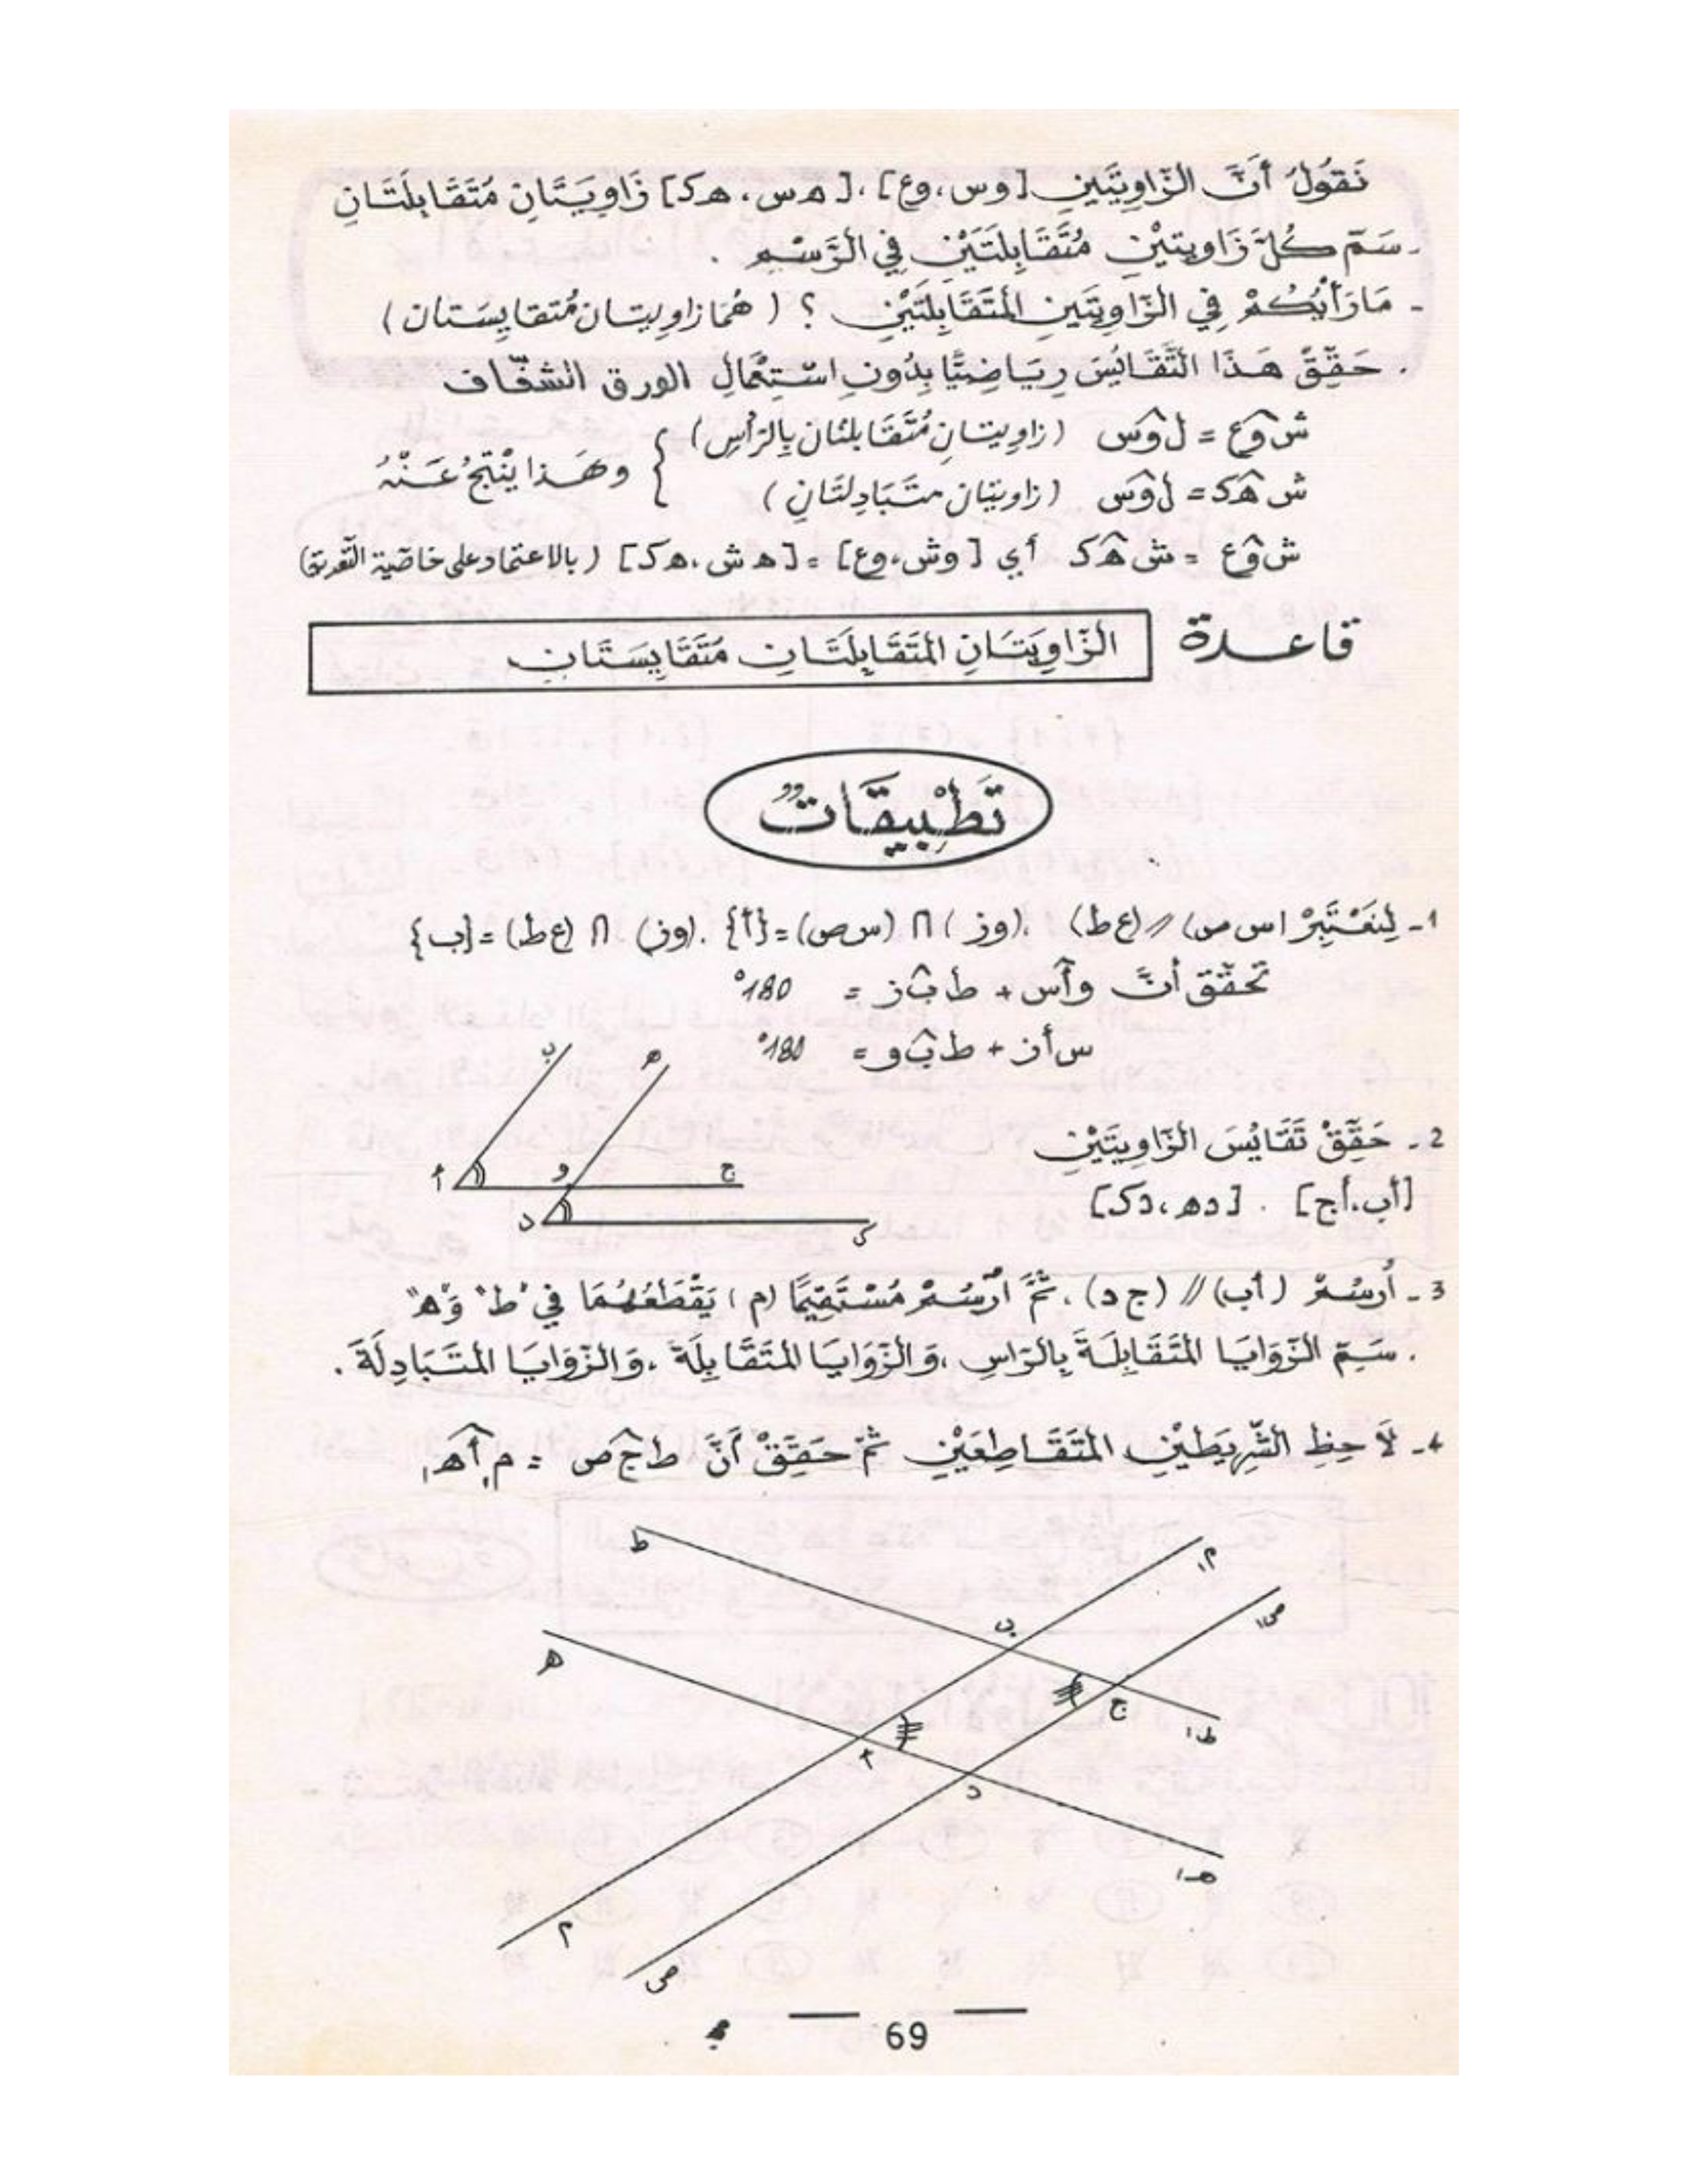 نَقُولُ أَنَّ الزَّاوِيَتَينِ [وس، وع]، [ه س، هك] زَاوِيَتَانِ مُتَقَابِلَتَانِ
- سَمِّ كُلَّ زَاوِيتيْنِ مُتَقَابِلَتَيْنِ فِي الرَّسْمِ .
- مَا رَأْيُكُمْ فِي الزَّاوِيَتَينِ المُتَقَابِلَتَيْنِ ؟ ( هُمَا زاويتان مُتقايِسَتان )
. حَقِّقْ هَذَا التَّقَايُسَ رِيَاضِيًّا بِدُونِ اسْتِعْمَالِ الورق الشفّاف
ش و̂ ع = ل و̂ س ( زاويتانِ مُتَقَابلتان بِالرَّأْسِ )
ش ه̂ ك = ل و̂ س ( زاويتان متَبَادِلتَانِ ) } وهَذا يَنْتِجُ عَنْهُ
ش و̂ ع = ش ه̂ ك أي [ وش، وع] = [ه ش، هك] ( بالاعتماد على خاصّية التّعدية)
قاعدة الزَّاوِيَتَانِ المُتَقَابِلَتَانِ مُتَقَايِسَتَانِ
تَطْبِيقَاتٌ
1- لِنَعْتَبِرْ (س ص) // (ع ط) ، (وز) ∩ (س ص) = {أ} . (وز) ∩ (ع ط) = {ب}
تحقّق أنَّ و أ̂ س + ط ب̂ ز = 180°
س أ ز + ط ب̂ و = 180°
ب ه
2- حَقِّقْ تَقَايُسَ الزَّاوِيتَيْنِ
أ و ج
[أب، أج] . [ده، دك]
د ك
3- أُرسُمْ (أب) // (ج د) . ثُمَّ أُرْسُمْ مُسْتَقِيمًا (م) يَقْطَعُهُمَا فِي "ط" وَ "ه"
. سَمِّ الزَّوَايَا المُتَقَابِلَةَ بِالرَّاسِ ،وَالزَّوَايَا المُتَقَابِلَةَ ،وَالزَّوَايَا المتَبَادِلَةَ .
4- لَاحِظِ الشَّرِيطَيْنِ المُتَقَاطِعَيْنِ ثُمَّ حَقِّقْ أَنَّ ط ج̂ ص = م₁ أ̂ ه₁
ط م₁
ب ص₁
ه ج
ط₁
أ د
ه₁
م
ص
69